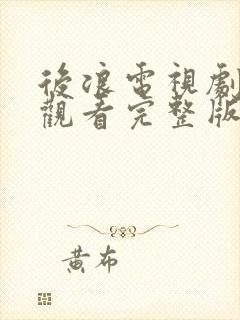 後浪電視劇
觀看完整版
黃布